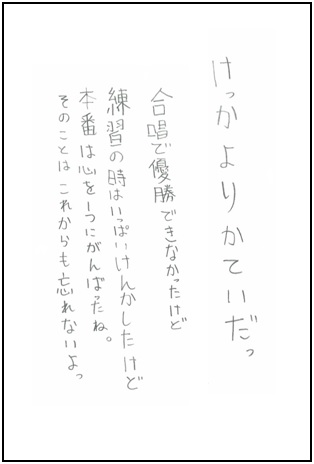 けっかよりかていだっ
合唱で優勝できなかったけど
練習の時はいっぱいけんかしたけど
本番は心を1つにがんばったね。
そのことはこれからも忘れないよっ